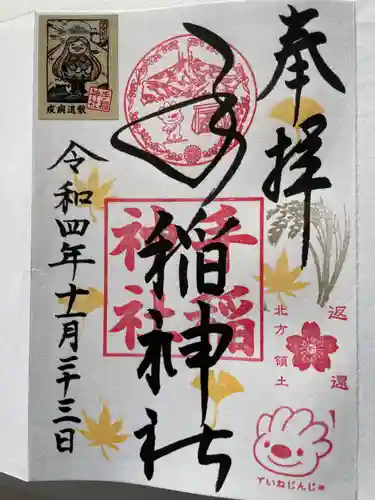 奉拝
北方領土
返還
ていねじんじゃ
手稲神社
手稲神社
令和四年十一月二十三日
疫病退散
手稲神社